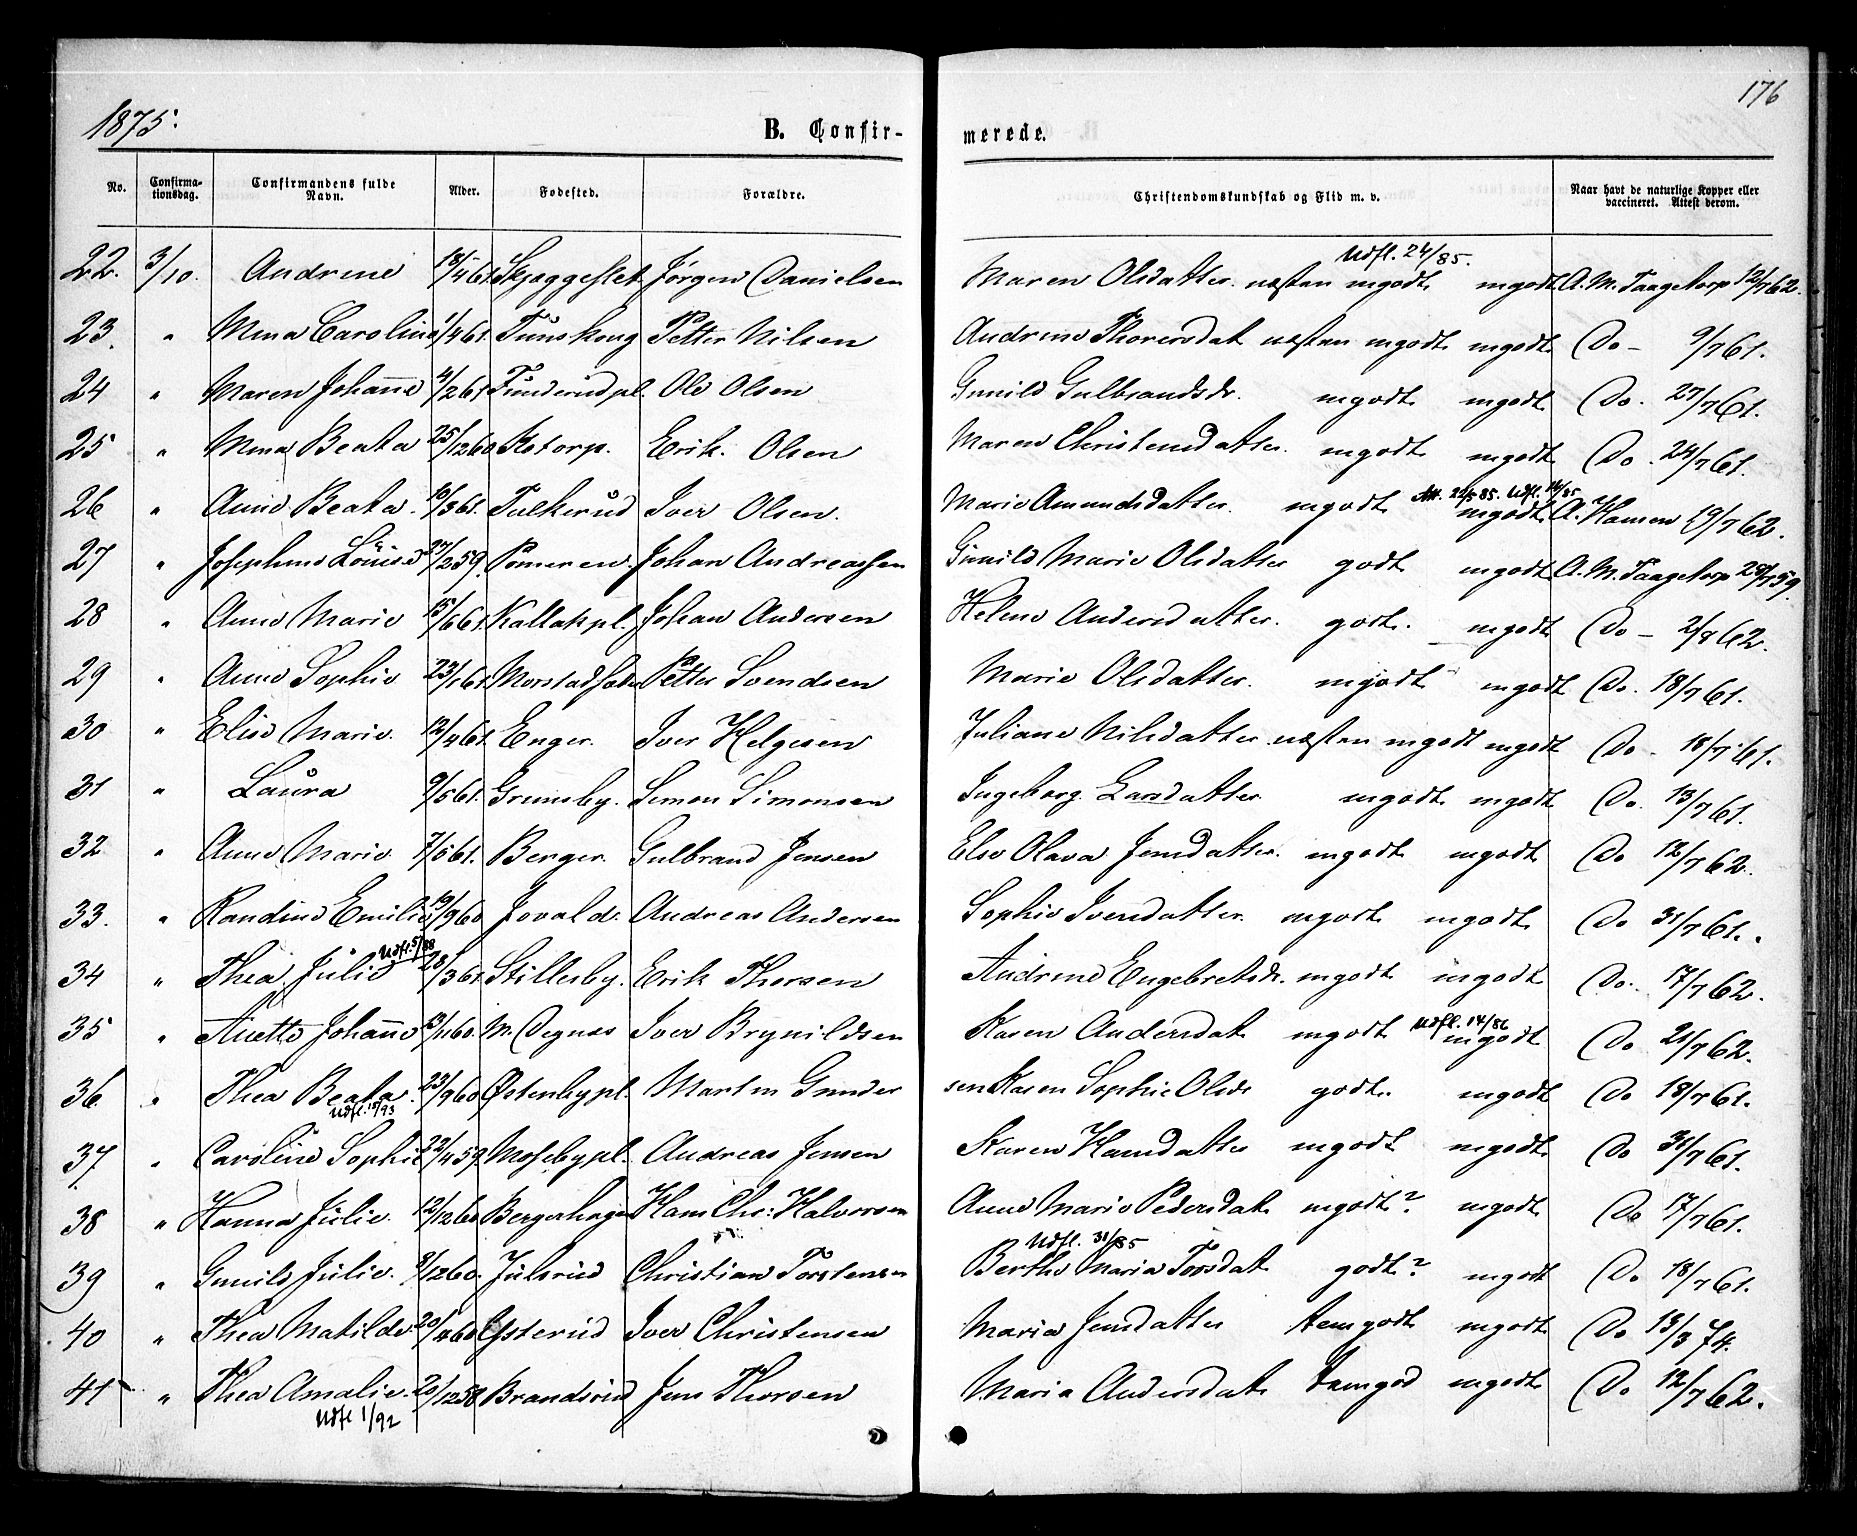 176
1875.
B. Confir- merede.
No. Confirma-tionsdag. Confirmandens fulde Navn. Alder. Fødested. Forældre. Christendomskundskab og Flid m. v. Naar havt de naturlige Kopper eller vaccineret. Attest derom.
Udfl. 24/85.
22. 3/10. Andrene 18/4 61. Skjæggeslet Jørgen Danielsen Maren Olsdatter. næsten mgodt mgodt A. M. Taagetorp 12/7 62.
23. " Mina Caroline 1/4 61. Tunskoug Petter Nilsen Andrine Thorersdat næsten mgodt mgodt Do - 9/7 61.
24 " Maren Johanne 4/2 61 Funderud pl. Ole Olsen Gunild Gulbrandsdr. mgodt mgodt Do. 27/7 61.
25 " Mina Beata 25/12 60 Kstorp. Erik Olsen Maren Christensdatter. mgodt mgodt Do. 24/7 61.
Att. 22/5 85. Udfl. 14/85
26 " Anne Beata. 10/3 61. Fulkerud Iver Olsen. Marie Amundsdatter. mgodt mgodt A. Hansen 19/7 62.
27 " Josephine Louise 27/2 59. Pomeren. Johan Andreassen Gunild Marie Olsdatter godt mgodt A. M. Taagetorp 28/7 59.
28 " Anne Marie 15/6 61. Kallak pl. Johan Andersen Helene Andersdatter. godt. mgodt Do - 2/8 62.
29 " Anne Sophie 23/1 61. Petter Svendsen Marie Olsdatter. mgodt mgodt Do. 18/7 61.
30 " Elise Marie. 12/4 61. Enger. Iver Helgesen Juliane Nilsdatter næsten mgodt mgodt Do - 18/7 61.
31 " Laura 9/5 61. Grimsby. Simon Simonsen Ingeborg Larsdatter mgodt mgodt Do. 13/7 61.
32 " Anne Marie 7/5 61. Berger. Gulbrand Jensen Else Olava Jensdatter. mgodt mgodt Do 12/7 62.
33. " Randine Emilie 19/9 60 Jovald. Andreas Andersen Sophie Iversdatter mgodt mgodt Do 31/7 61.
Udfl. 5/88
34 " Thea Julie 28/3 61 Stillesby. Erik Thorsen Andrine Engebretsdr. mgodt mgodt Do. 17/7 62.
Udfl. 14/86
35 " Anette Johanne 3/11 60. M. Degnes Iver Brynildsen Karen Andersdat mgodt mgodt Do 21/7 62.
36 " Thea Beata. 23/9 60 Østenby pl. Martin Gundersen Karen Sophie Olsdr godt. mgodt Do 18/7 61.
Udfl. 15/93
37 " Caroline Sophie 22/4 59. Moseby pl. Andreas Jensen Karen Hansdatter mgodt mgodt Do 31/7 61.
38 " Hanna Julie. 12/12 60 Bergerhagen Hans Chr: Halvorsen Anne Marie Pedersdat mgodt? mgodt Do 17/7 61.
Udfl. 31/85
39 " Gunild Julie. 9/12 60. Julsrud Christian Torstensen Berthe Maria Torsdat godt? mgodt Do 18/7 61.
40 " Thea Matilde. 20/4 60 Østerud Iver Christensen Maria Jensdatter temgodt mgodt Do 13/3 74.
41 " Thea Amalie. 20/12 58 Brandsrud Jens Thorsen Maria Andersdat temgod mgodt Do 12/7 62.
Udfl 1/92